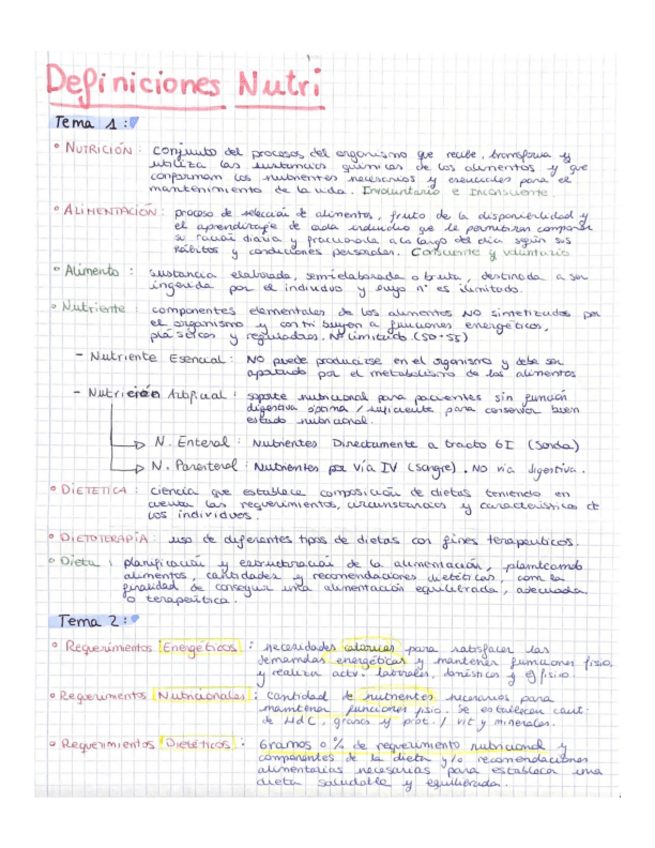 Definiciones Nutri
Tema 1:
• NUTRICIÓN: conjunto del procesos del organismo que recibe, transforma y
utiliza las sustancias químicas de los alimentos y que
conforman los nutrientes necesarios y esenciales para el
mantenimiento de la vida. Involuntario e Inconsciente.
• ALIMENTACIÓN: proceso de selección de alimentos, fruto de la disponibilidad y
el aprendizaje de cada individuo que le permitiran componer
su ración diaria y fraccionada a lo largo del día según sus
hábitos y condiciones personales. Consciente y voluntario
• Alimento: sustancia elaborada, semielaborada o bruta, destinada a ser
ingerida por el individuo y cuyo nº es ilimitado.
• Nutriente: componentes elementales de los alimentos NO sintetizados por
el organismo y contribuyen a funciones energéticas,
plásticas y reguladoras. Nº limitado (50-55)
- Nutriente Esencial: NO puede producirse en el organismo y debe ser
aportado por el metabolismo de los alimentos
- Nutrición Artificial: soporte nutricional para pacientes sin función
digestiva óptima / suficiente para conservar buen
estado nutricional.
N. Enteral: Nutrientes Directamente a tracto GI (Sonda)
N. Parenteral: Nutrientes por vía IV (sangre). NO via digestiva.
• DIETETICA: ciencia que establece composición de dietas teniendo en
cuenta los requerimientos, circunstancias y caracteristicas de
los individuos.
• DIETOTERAPIA: uso de diferentes tipos de dietas con fines terapeuticos.
• Dieta: planificación y estructuración de la alimentación, planteando
alimentos, cantidades y recomendaciones dietéticas, con la
finalidad de conseguir una alimentación equilibrada, adecuada
o terapéutica.
Tema 2:
• Requerimentos Energéticos: necesidades calóricas para satisfacer las
demandas energéticas y mantener funciones fisio.
y realizar activ. laborales, domésticas y ej fisico.
• Requerimentos Nutricionales: cantidad de nutrientes necesarios para
mantener funciones fisio. Se establecen cant.
de HdC, grasas y prot. / vit y minerales.
• Requerimientos Dietéticos: Gramos o % de requerimento nutricional y
componentes de la dieta y/o recomendaciones
alimentarias necesarias para establecer una
dieta saludable y equilibrada.